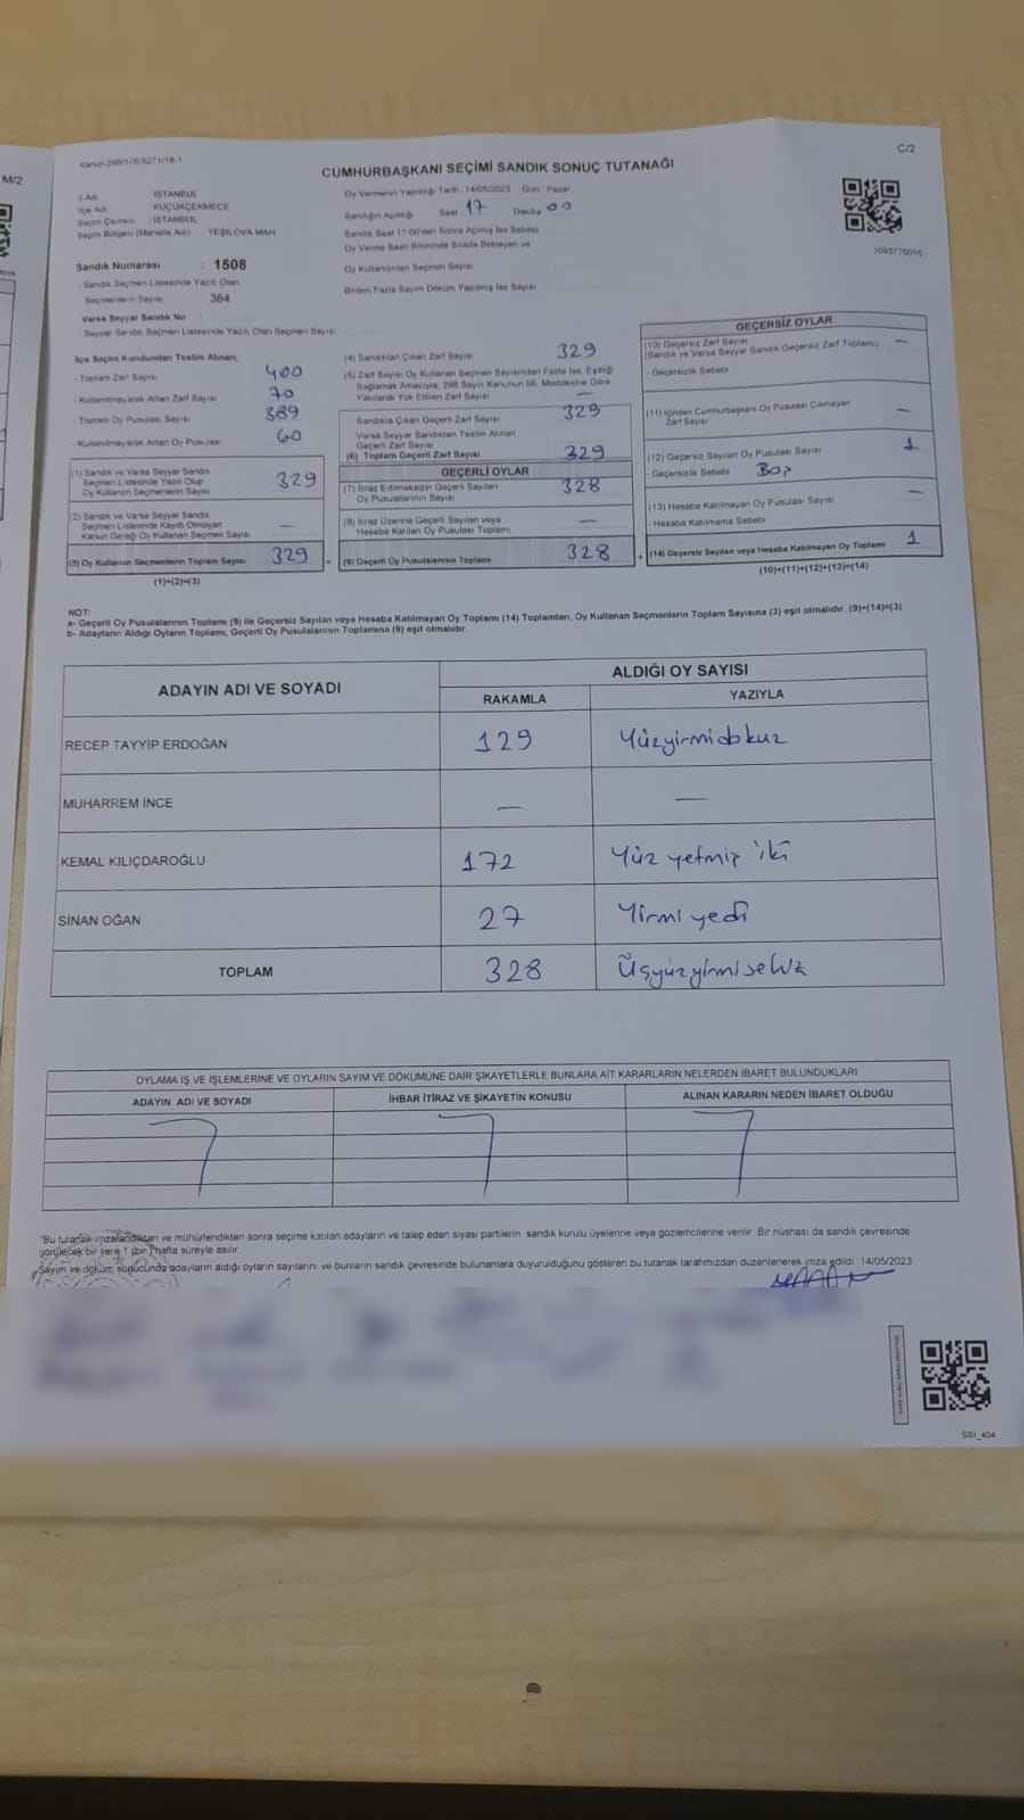 M/2
C/2
CUMHURBAŞKANI SEÇİMİ SANDIK SONUÇ TUTANAĞI
İl Adı : İSTANBUL
İlçe Adı : KÜÇÜKÇEKMECE
Seçim Çevresi : İSTANBUL
Seçim Bölgesi (Mahalle Adı) : YEŞİLOVA MAH
Sandık Numarası : 1508
Sandık Seçmen Listesinde Yazılı Olan
Seçmenlerin Sayısı 364
Varsa Seyyar Sandık No
Seyyar Sandık Seçmen Listesinde Yazılı Olan Seçmen Sayısı
Oy Vermenin Yapıldığı Tarih : 14/05/2023 Gün : Pazar
Sandığın Açıldığı Saat 17 Dakika 00
Sandık Saat 17:00'den Sonra Açılmış İse Sebebi
Oy Verme Saati Bitiminde Sırada Bekleyen ve
Oy Kullandırılan Seçmen Sayısı
Birden Fazla Sayım Döküm Yapılmış İse Sayısı
İlçe Seçim Kurulundan Teslim Alınan;
- Toplam Zarf Sayısı 400
- Kullanılmayarak Artan Zarf Sayısı 70
- Toplam Oy Pusulası Sayısı 389
- Kullanılmayarak Artan Oy Pusulası 60
(1) Sandık ve Varsa Seyyar Sandık
Seçmen Listesinde Yazılı Olup
Oy Kullanan Seçmenlerin Sayısı 329
(2) Sandık ve Varsa Seyyar Sandık
Seçmen Listesinde Kayıtlı Olmayan
Kanun Gereği Oy Kullanan Seçmen Sayısı —
(3) Oy Kullanan Seçmenlerin Toplam Sayısı 329
(1)+(2)=(3)
(4) Sandıktan Çıkan Zarf Sayısı 329
(5) Zarf Sayısı Oy Kullanan Seçmen Sayısından Fazla İse, Eşitliği
Sağlamak Amacıyla, 298 Sayılı Kanunun 98. Maddesine Göre
Yakılarak Yok Edilen Zarf Sayısı —
Sandıkta Çıkan Geçerli Zarf Sayısı 329
Varsa Seyyar Sandıktan Teslim Alınan
Geçerli Zarf Sayısı
(6) Toplam Geçerli Zarf Sayısı 329
GEÇERLİ OYLAR
(7) İtiraz Edilmeksizin Geçerli Sayılan
Oy Pusulalarının Sayısı 328
(8) İtiraz Üzerine Geçerli Sayılan veya
Hesaba Katılan Oy Pusulası Toplamı —
(9) Geçerli Oy Pusulalarının Toplamı 328
GEÇERSİZ OYLAR
(10) Geçersiz Zarf Sayısı —
(Sandık ve Varsa Seyyar Sandık Geçersiz Zarf Toplamı)
- Geçersizlik Sebebi
(11) İçinden Cumhurbaşkanı Oy Pusulası Çıkmayan
Zarf Sayısı —
(12) Geçersiz Sayılan Oy Pusulası Sayısı 1
- Geçersizlik Sebebi Boş
(13) Hesaba Katılmayan Oy Pusulası Sayısı —
- Hesaba Katılmama Sebebi
(14) Geçersiz Sayılan veya Hesaba Katılmayan Oy Toplamı 1
(10)+(11)+(12)+(13)=(14)
NOT:
a- Geçerli Oy Pusulalarının Toplamı (9) ile Geçersiz Sayılan veya Hesaba Katılmayan Oy Toplamı (14) Toplamları, Oy Kullanan Seçmenlerin Toplam Sayısına (3) eşit olmalıdır. (9)+(14)=(3)
b- Adayların Aldığı Oyların Toplamı, Geçerli Oy Pusulalarının Toplamına (9) eşit olmalıdır.
ADAYIN ADI VE SOYADI
ALDIĞI OY SAYISI
RAKAMLA YAZIYLA
RECEP TAYYİP ERDOĞAN 129 Yüzyirmidokuz
MUHARREM İNCE — —
KEMAL KILIÇDAROĞLU 172 Yüz yetmiş iki
SİNAN OĞAN 27 Yirmi yedi
TOPLAM 328 Üçyüzyirmisekiz
OYLAMA İŞ VE İŞLEMLERİNE VE OYLARIN SAYIM VE DÖKÜMÜNE DAİR ŞİKAYETLERLE BUNLARA AİT KARARLARIN NELERDEN İBARET BULUNDUKLARI
ADAYIN ADI VE SOYADI İHBAR İTİRAZ VE ŞİKAYETİN KONUSU ALINAN KARARIN NEDEN İBARET OLDUĞU
"Bu tutanak imzalandıktan ve mühürlendikten sonra seçime katılan adayların ve talep eden siyasi partilerin sandık kurulu üyelerine veya gözlemcilerine verilir. Bir nüshası da sandık çevresinde
görülecek bir yere 1 (bir) hafta süreyle asılır.
Sayım ve döküm sonucunda adayların aldığı oyların sayılarını ve bunların sandık çevresinde bulunanlara duyurulduğunu gösteren bu tutanak tarafımızdan düzenlenerek imza edildi. 14/05/2023